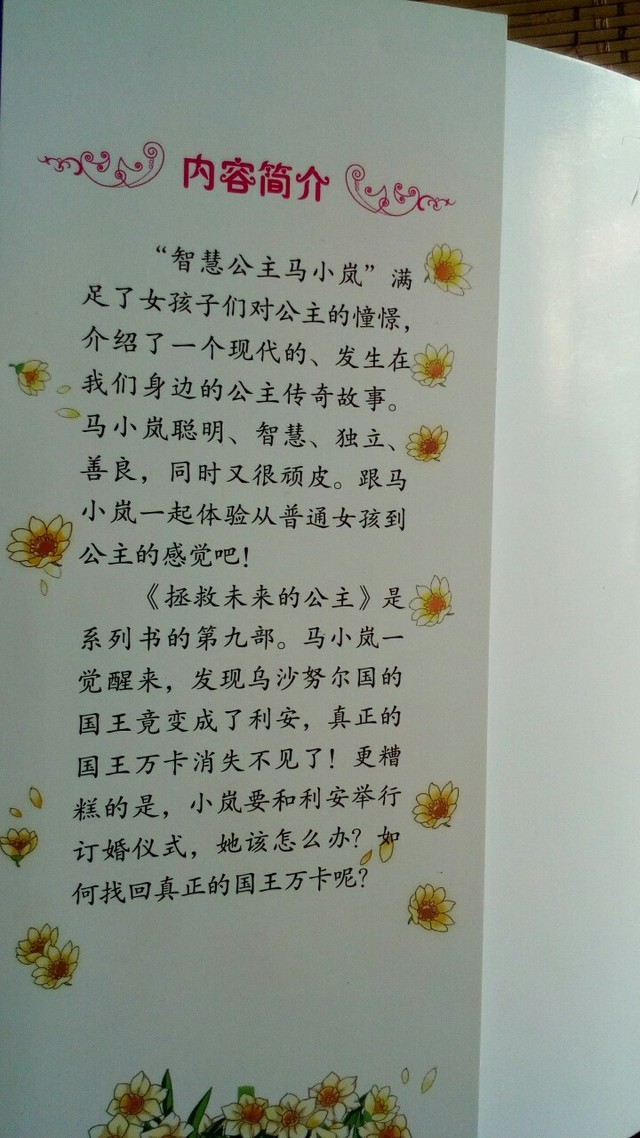 内容简介
“智慧公主马小岚”满
足了女孩子们对公主的憧憬，
介绍了一个现代的、发生在
我们身边的公主传奇故事。
马小岚聪明、智慧、独立、
善良，同时又很顽皮。跟马
小岚一起体验从普通女孩到
公主的感觉吧！
《拯救未来的公主》是
系列书的第九部。马小岚一
觉醒来，发现乌沙努尔国的
国王竟变成了利安，真正的
国王万卡消失不见了！更糟
糕的是，小岚要和利安举行
订婚仪式，她该怎么办？如
何找回真正的国王万卡呢？